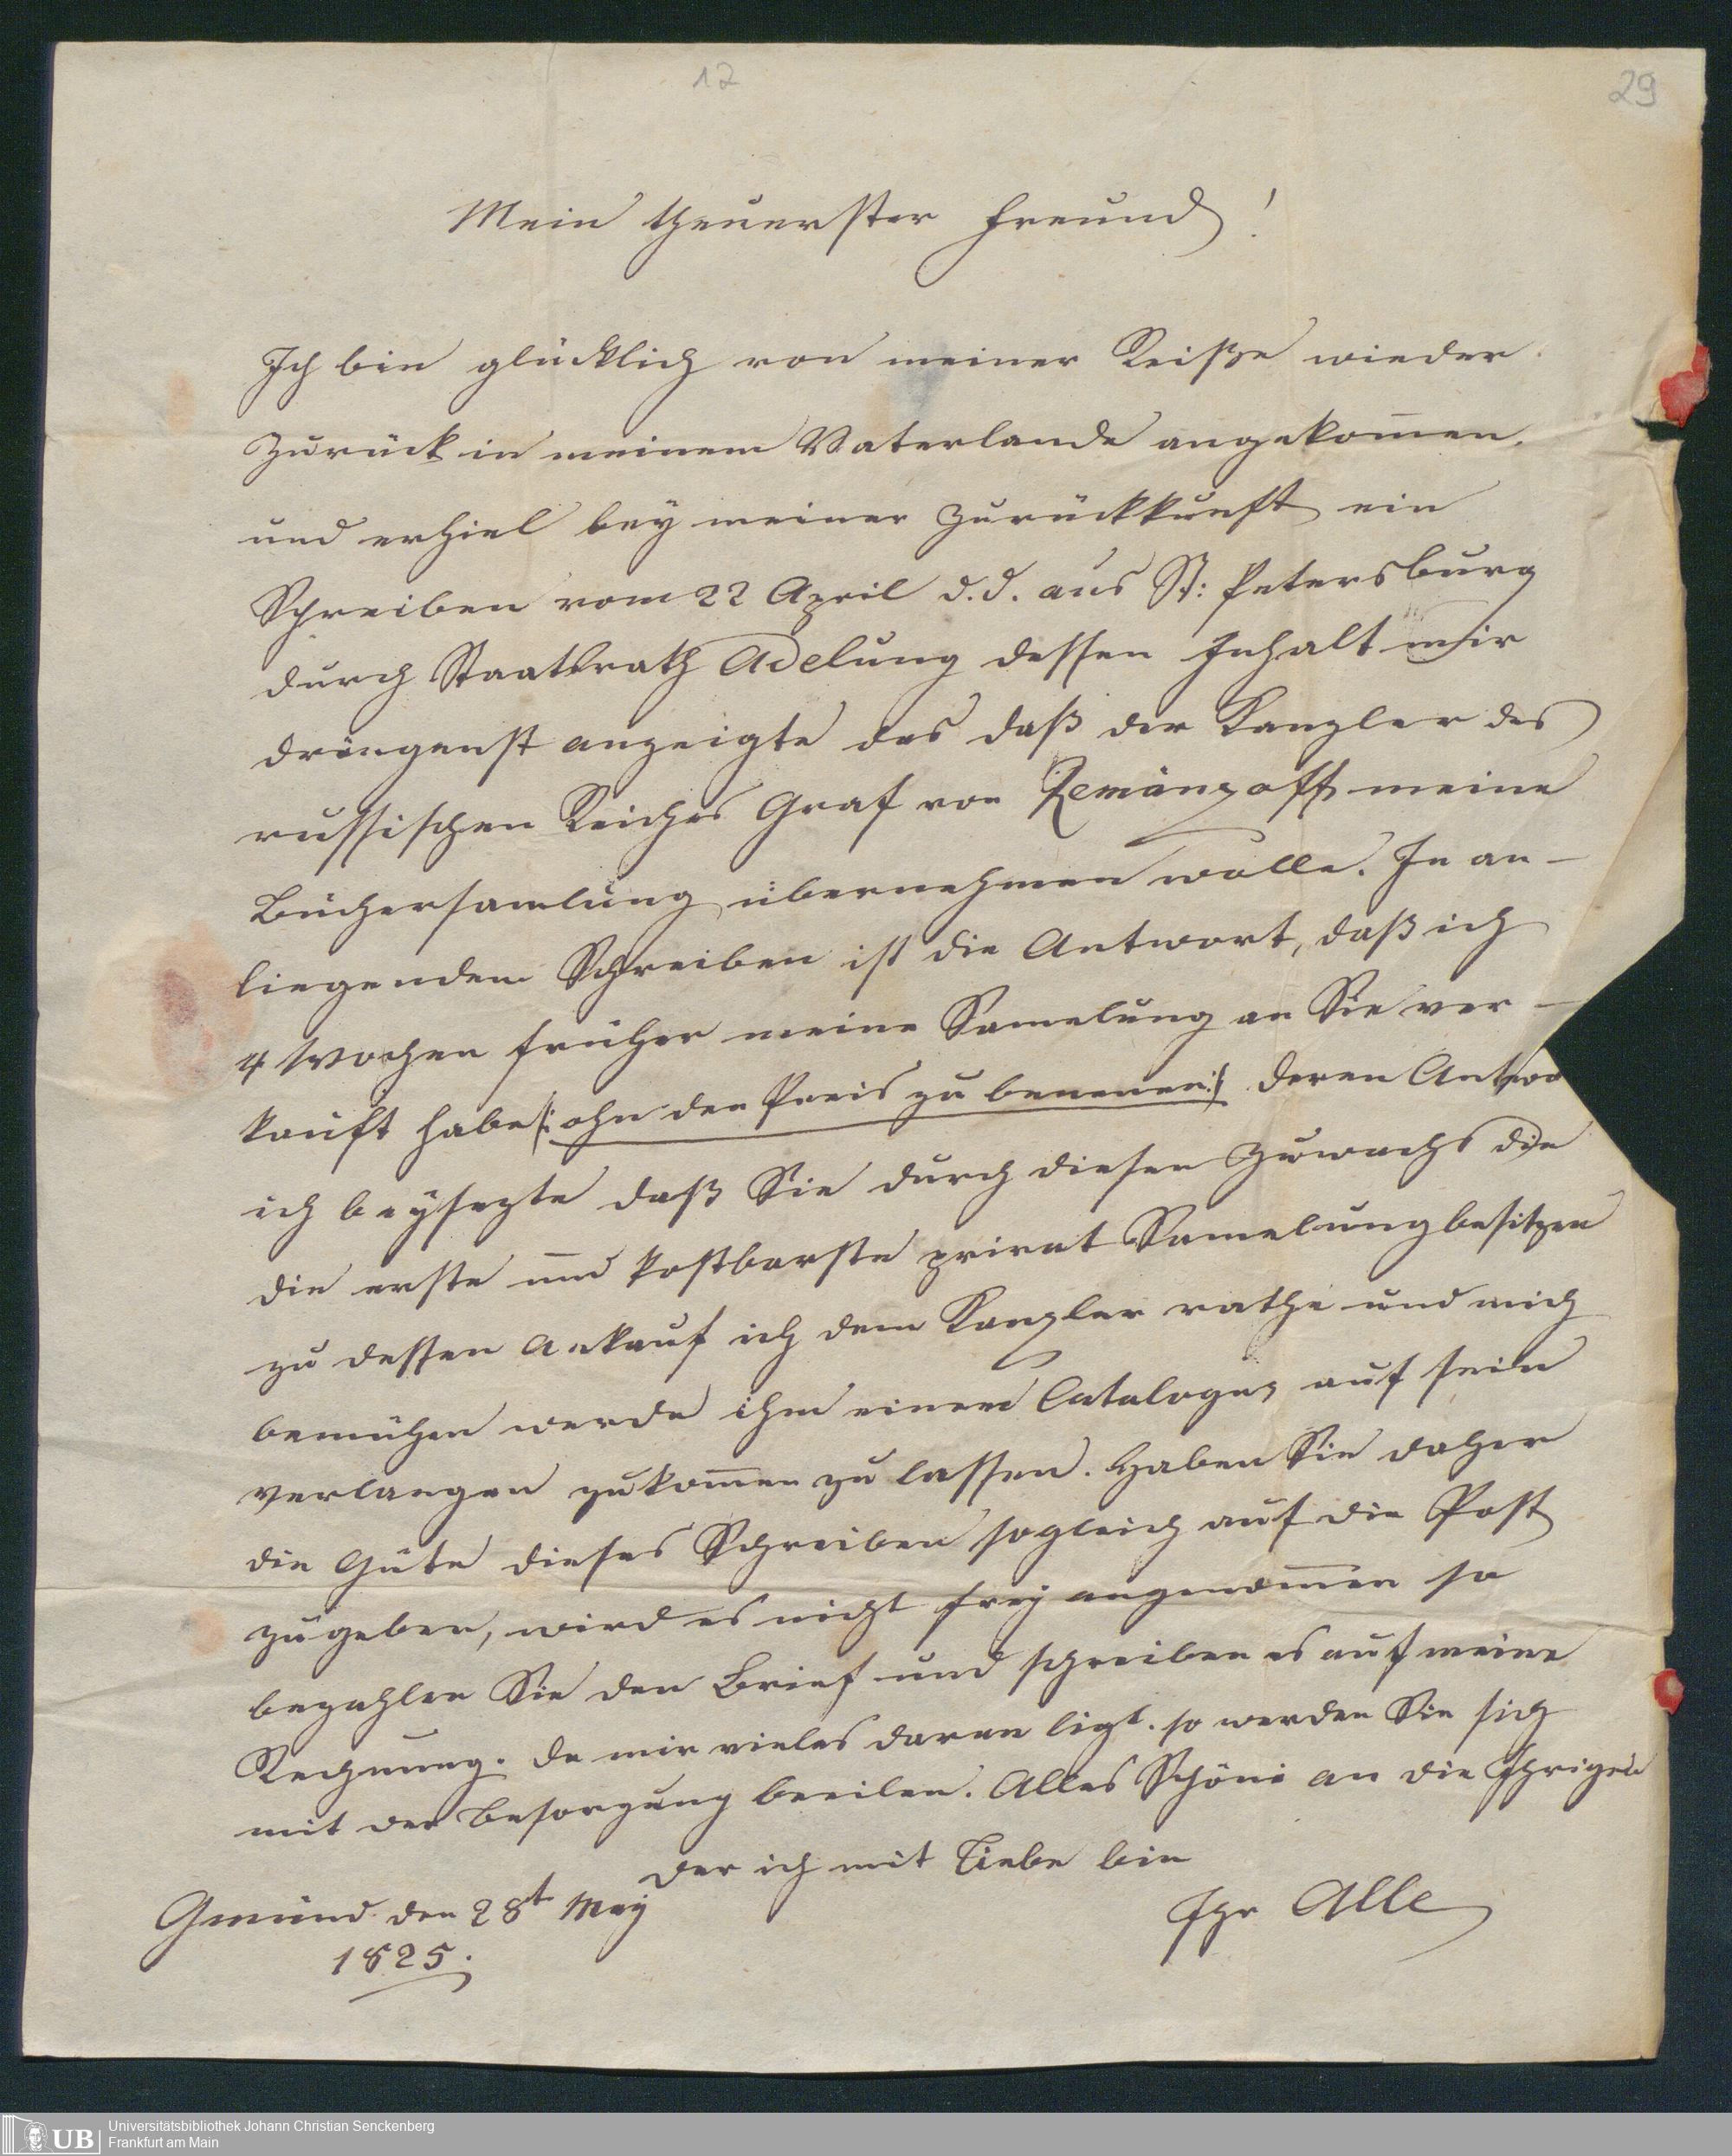 12
29
Mein theuerster Freund!
Ich bin glücklich von meiner Reiße wieder
zurück in meinem Vaterlande angekom̄en.
und erhiel bey meiner Zurückkunft ein
Schreiben vom 22 April d.d. aus St: Petersburg
durch Staatsrath Adelung dessen Inhalt mir
dringenst anzeigte das daß der Kanzler des
russischen Reiches Graf von Remanzoff meine
Büchersamlung übernehmen wolle. In an-
liegendem Schreiben ist die Antwort, daß ich
4 Wochen früher meine Samelung an Sie ver-
kauft habe /: ohn den Preis zu benenen :/ deren Antwo
ich beysezte daß Sie durch diesen Zuwachs die
die erste und kostbarste privat Samelung besitzen
zu dessen Ankauf ich dem Kanzler rathe und mich
bemühen werde ihm einen Catalogus auf sein
verlangen zukom̄en zu lassen. Haben Sie daher
die Güte dieses Schreiben sogleich auf die Post
zu geben, wird es nicht frey angenom̄en so
bezahlen Sie den Brief und schreiben es auf meine
Rechnung. da mir vieles daran ligt. so werden Sie sich
mit der Besorgung beeilen. Alles Schöne an die Ihrigen
der ich mit Liebe bin
Gmünd den 28t May
1825.
Ihr Alle
UB
Universitätsbibliothek Johann Christian Senckenberg
Frankfurt am Main